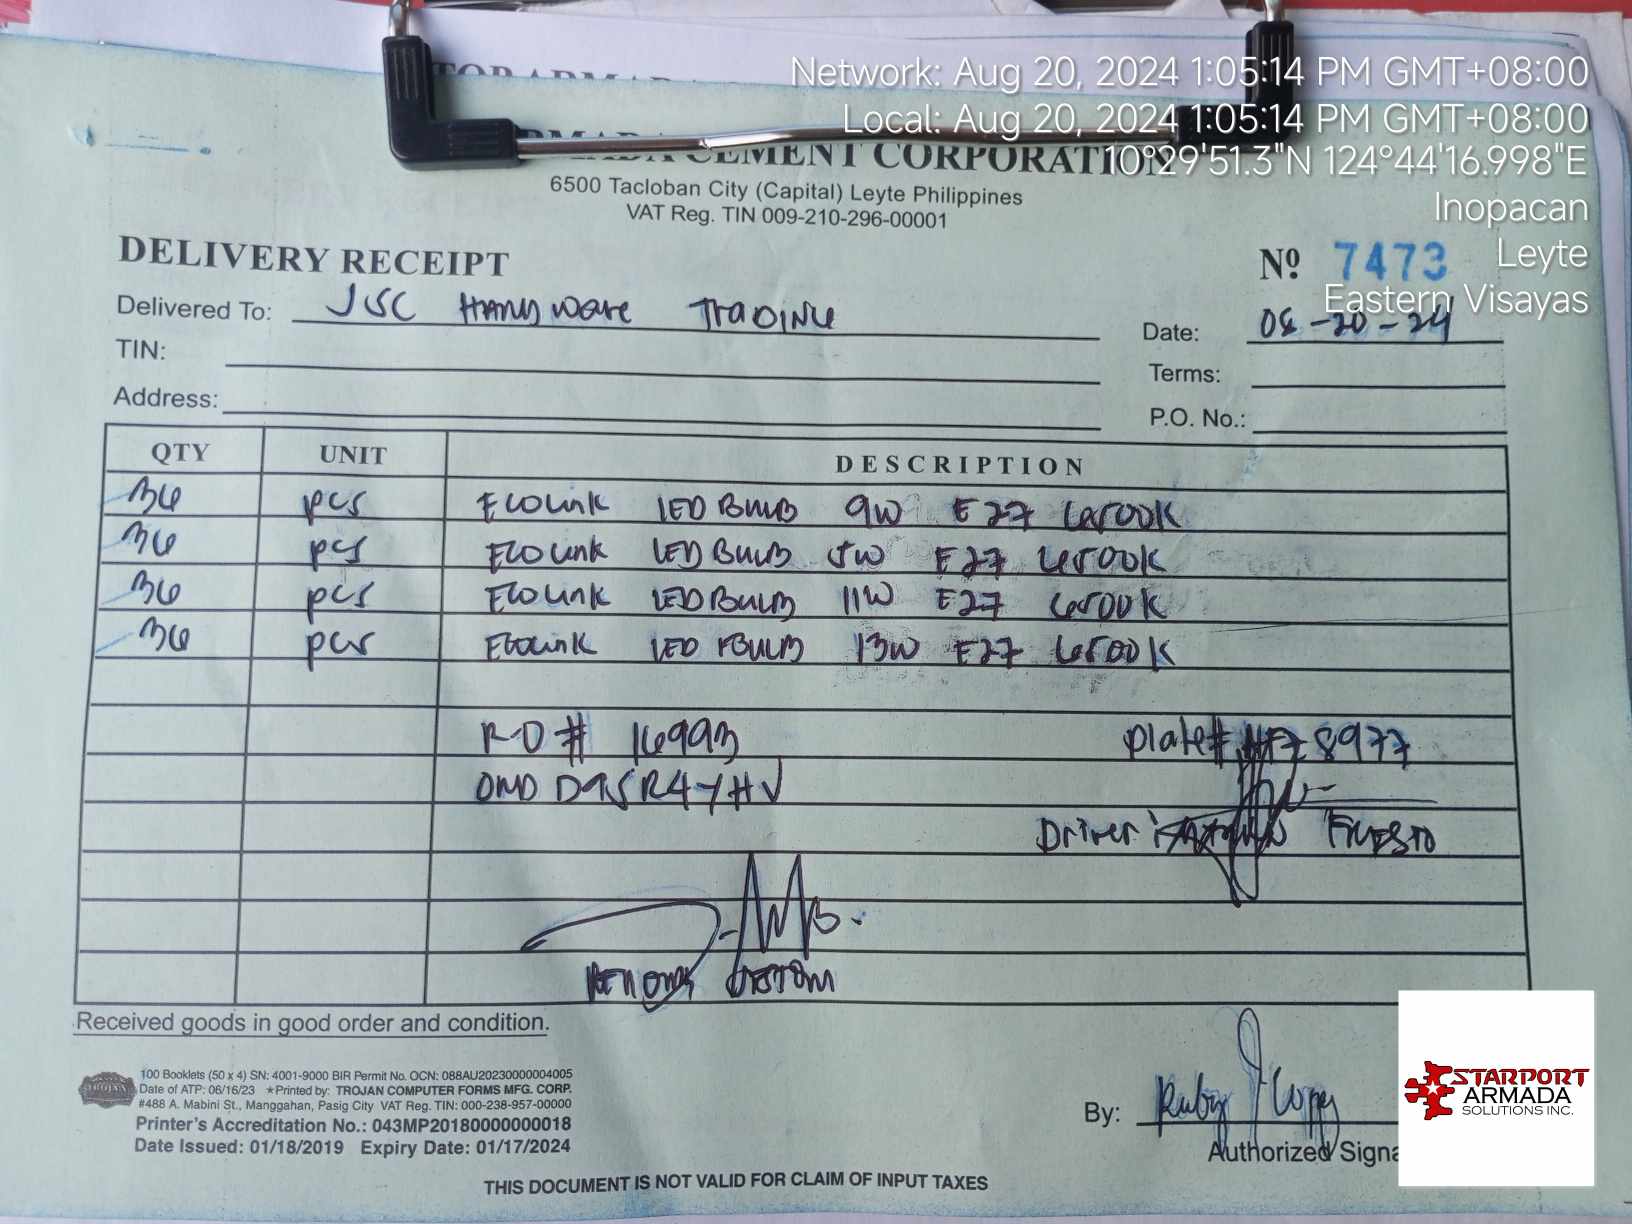 Network: Aug 20, 2024 1:05:14 PM GMT+08:00
Local: Aug 20, 2024 1:05:14 PM GMT+08:00
10°29'51.3"N 124°44'16.998"E
Inopacan
Leyte
Eastern Visayas
CEMENT CORPORATION
6500 Tacloban City (Capital) Leyte Philippines
VAT Reg. TIN 009-210-296-00001
DELIVERY RECEIPT
Nº 7473
Delivered To: JSC Hardware Trading
Date: 08-20-24
TIN:
Terms:
Address:
P.O. No.:
QTY UNIT DESCRIPTION
36 pcs Ecolink LED Bulb 9W E27 6500K
36 pcs Ecolink LED Bulb 5W E27 6500K
36 pcs Ecolink LED Bulb 11W E27 6500K
36 pcs Ecolink LED Bulb 13W E27 6500K
R-O# 16993 Plate# 8977
Driver:
Received goods in good order and condition.
100 Booklets (50 x 4) SN: 4001-9000 BIR Permit No. OCN: 088AU20230000004005
Date of ATP: 06/16/23 ★Printed by: TROJAN COMPUTER FORMS MFG. CORP.
#488 A. Mabini St., Manggahan, Pasig City VAT Reg. TIN: 000-238-957-00000
Printer's Accreditation No.: 043MP20180000000018
Date Issued: 01/18/2019 Expiry Date: 01/17/2024
By: Ruby
Authorized
THIS DOCUMENT IS NOT VALID FOR CLAIM OF INPUT TAXES
STARPORT
ARMADA
SOLUTIONS INC.